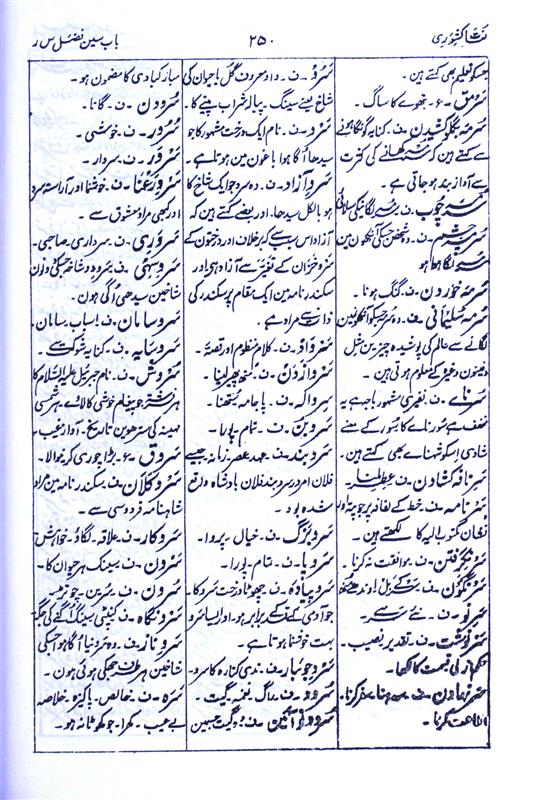 لغات کشوری
۲۵۰
باب سین فصل س ر
جسکو تعلیم بھی کہتے ہین۔
سرمق۔ ع۔ بتھوے کا ساگ۔
سرمہ بگلو کشیدن۔ ف۔ کنایہ گونگا ہونے
سے کہتے ہین کہ سرمہ کھانے کی کثرت
سے آواز بند ہوجاتی ہے۔
سرمہ چوب۔ ف۔ سرمہ لگانیکی سلائی
سرمہ چشم۔ ف۔ وہ شخص جسکی آنکھون مین
سرمہ لگا ہوا ہو
سرمہ خوردن۔ ف۔ گنگ ہونا۔
سرمہ سلیمانی۔ ف۔ وہ سرمہ جسکو آنکھ مین
لگانے سے عالم کی پوشیدہ چیزین مثل
دفینون وغیرہ کے معلوم ہوتی ہین۔
سرناے۔ ف۔ نفیری مشہور باجہ ہے یہ
مخفف ہے سورناے کا سور کے معنے
شادی اسکو شہناے بھی کہتے ہین۔
سرنافہ کشادن۔ ف۔ عطر ملنا۔
سرنامہ۔ ف۔ خط کے لفافہ پر جو پتہ اور
نشان مکتوب الیہ کا لکھتے ہین۔
سر نگرفتن۔ ف۔ موافقت نہ کرنا۔
سرنگون۔ ف۔ سر کے بل اوندھے منھ
سر نو۔ ف۔ نئے سر سے۔
سرنوشت۔ ف۔ تقدیر نصیب۔
حکم ازلی قسمت کا لکھا۔
سر نہادن۔ ف۔ سفر کرنا۔
اطاعت کرنا۔
سرو۔ ف۔
شاخ یعنے سینگ۔ پیالہ شراب پینے کا۔
سرو۔ ف۔ نام ایک درخت مشہور کا جو
سیدھا اُگا ہوا باغون مین ہوتا ہے۔
سرو آزاد۔ ف۔ وہ سرو جو ایک شاخ کا
ہو بالکل سیدھا۔ اور بعضے کہتے ہین کہ
آزاد اس سبب سے کہ برخلاف اور درختون کے
سرو خزان کے تغیر سے آزاد ہی اور
سکندرنامہ مین ایک مقام پر سکندر کی
ذات سے مراد ہے۔
سرواد۔ ف۔ کلام منظوم اور قصہ۔
سر وازدن۔ ف۔ منھ پھیر لینا۔
سروالہ۔ ف۔ پاجامہ سُتھنا۔
سر و بن۔ ف۔ تمام۔ پورا۔
سر و بند۔ ف۔ عہد عصر زمانہ جیسے
فلان امر در سر و بند فلان بادشاہ واقع
شدہ بود۔
سر و برگ۔ ف۔ خیال۔ پروا۔
سر و پا۔ ف۔ تمام۔ پورا۔
سرو پیادہ۔ ف۔ چھوٹا درخت سرو کا۔
جو آدمی کے قد کے برابر ہو۔ اور ایسا سرو
بہت خوشنما ہوتا ہے۔
سرو جویبار۔ ف۔ ندی کنارہ کا سرو۔
سرود۔ ف۔ راگ۔ نغمہ گیت۔
سرود آئین۔ ف۔ وہ گیت جسمین
مبارکبادی کا مضمون ہو۔
سرودن۔ ف۔ گانا۔
سرور۔ ف۔ خوشی۔
سرور۔ ف۔ سردار۔
سرو رعنا۔ ف۔ خوشنما اور آراستہ سرو
اور کبھی مراد معشوق سے۔
سروری۔ ف۔ سرداری۔ صاحبی۔
سرو سہی۔ ف۔ سرو دو شاخہ جسکی دونون
شاخین سیدھی اُگی ہون۔
سر و سامان۔ ف۔ اسباب سامان۔
سرو سایہ۔ ف۔ کنایہ شوکت سے۔
سروش۔ ف۔ نام جبرئیل علیہ السلام کا
ہر فرشتہ جو پیغام خوشی کا لاے۔ ہر شمسی
مہینہ کی سترھوین تاریخ۔ آواز غیب۔
سروق۔ ع۔ بڑا چوری کرنیوالا۔
سرو کلان۔ ف۔ سکندرنامہ مین مراد
شاہنامہ فردوسی سے۔
سروکار۔ ف۔ علاقہ۔ لگاؤ۔ خواہش۔
سرون۔ ف۔ سینگ ہر حیوان کا۔
سرون۔ ف۔ سُرین۔ چوتڑ۔
سرونگاہ۔ ف۔ کنپٹی سینگ اُگنے کی جگہ
سرو ناز۔ ف۔ وہ سرو نیا اُگا ہوا جسکی
شاخین ہر طرف جھکی ہوئی ہون۔
سرہ۔ ف۔ خالص۔ پاکیزہ۔ خلاصہ
بے عیب۔ کھرا۔ جو کھوٹا نہ ہو۔